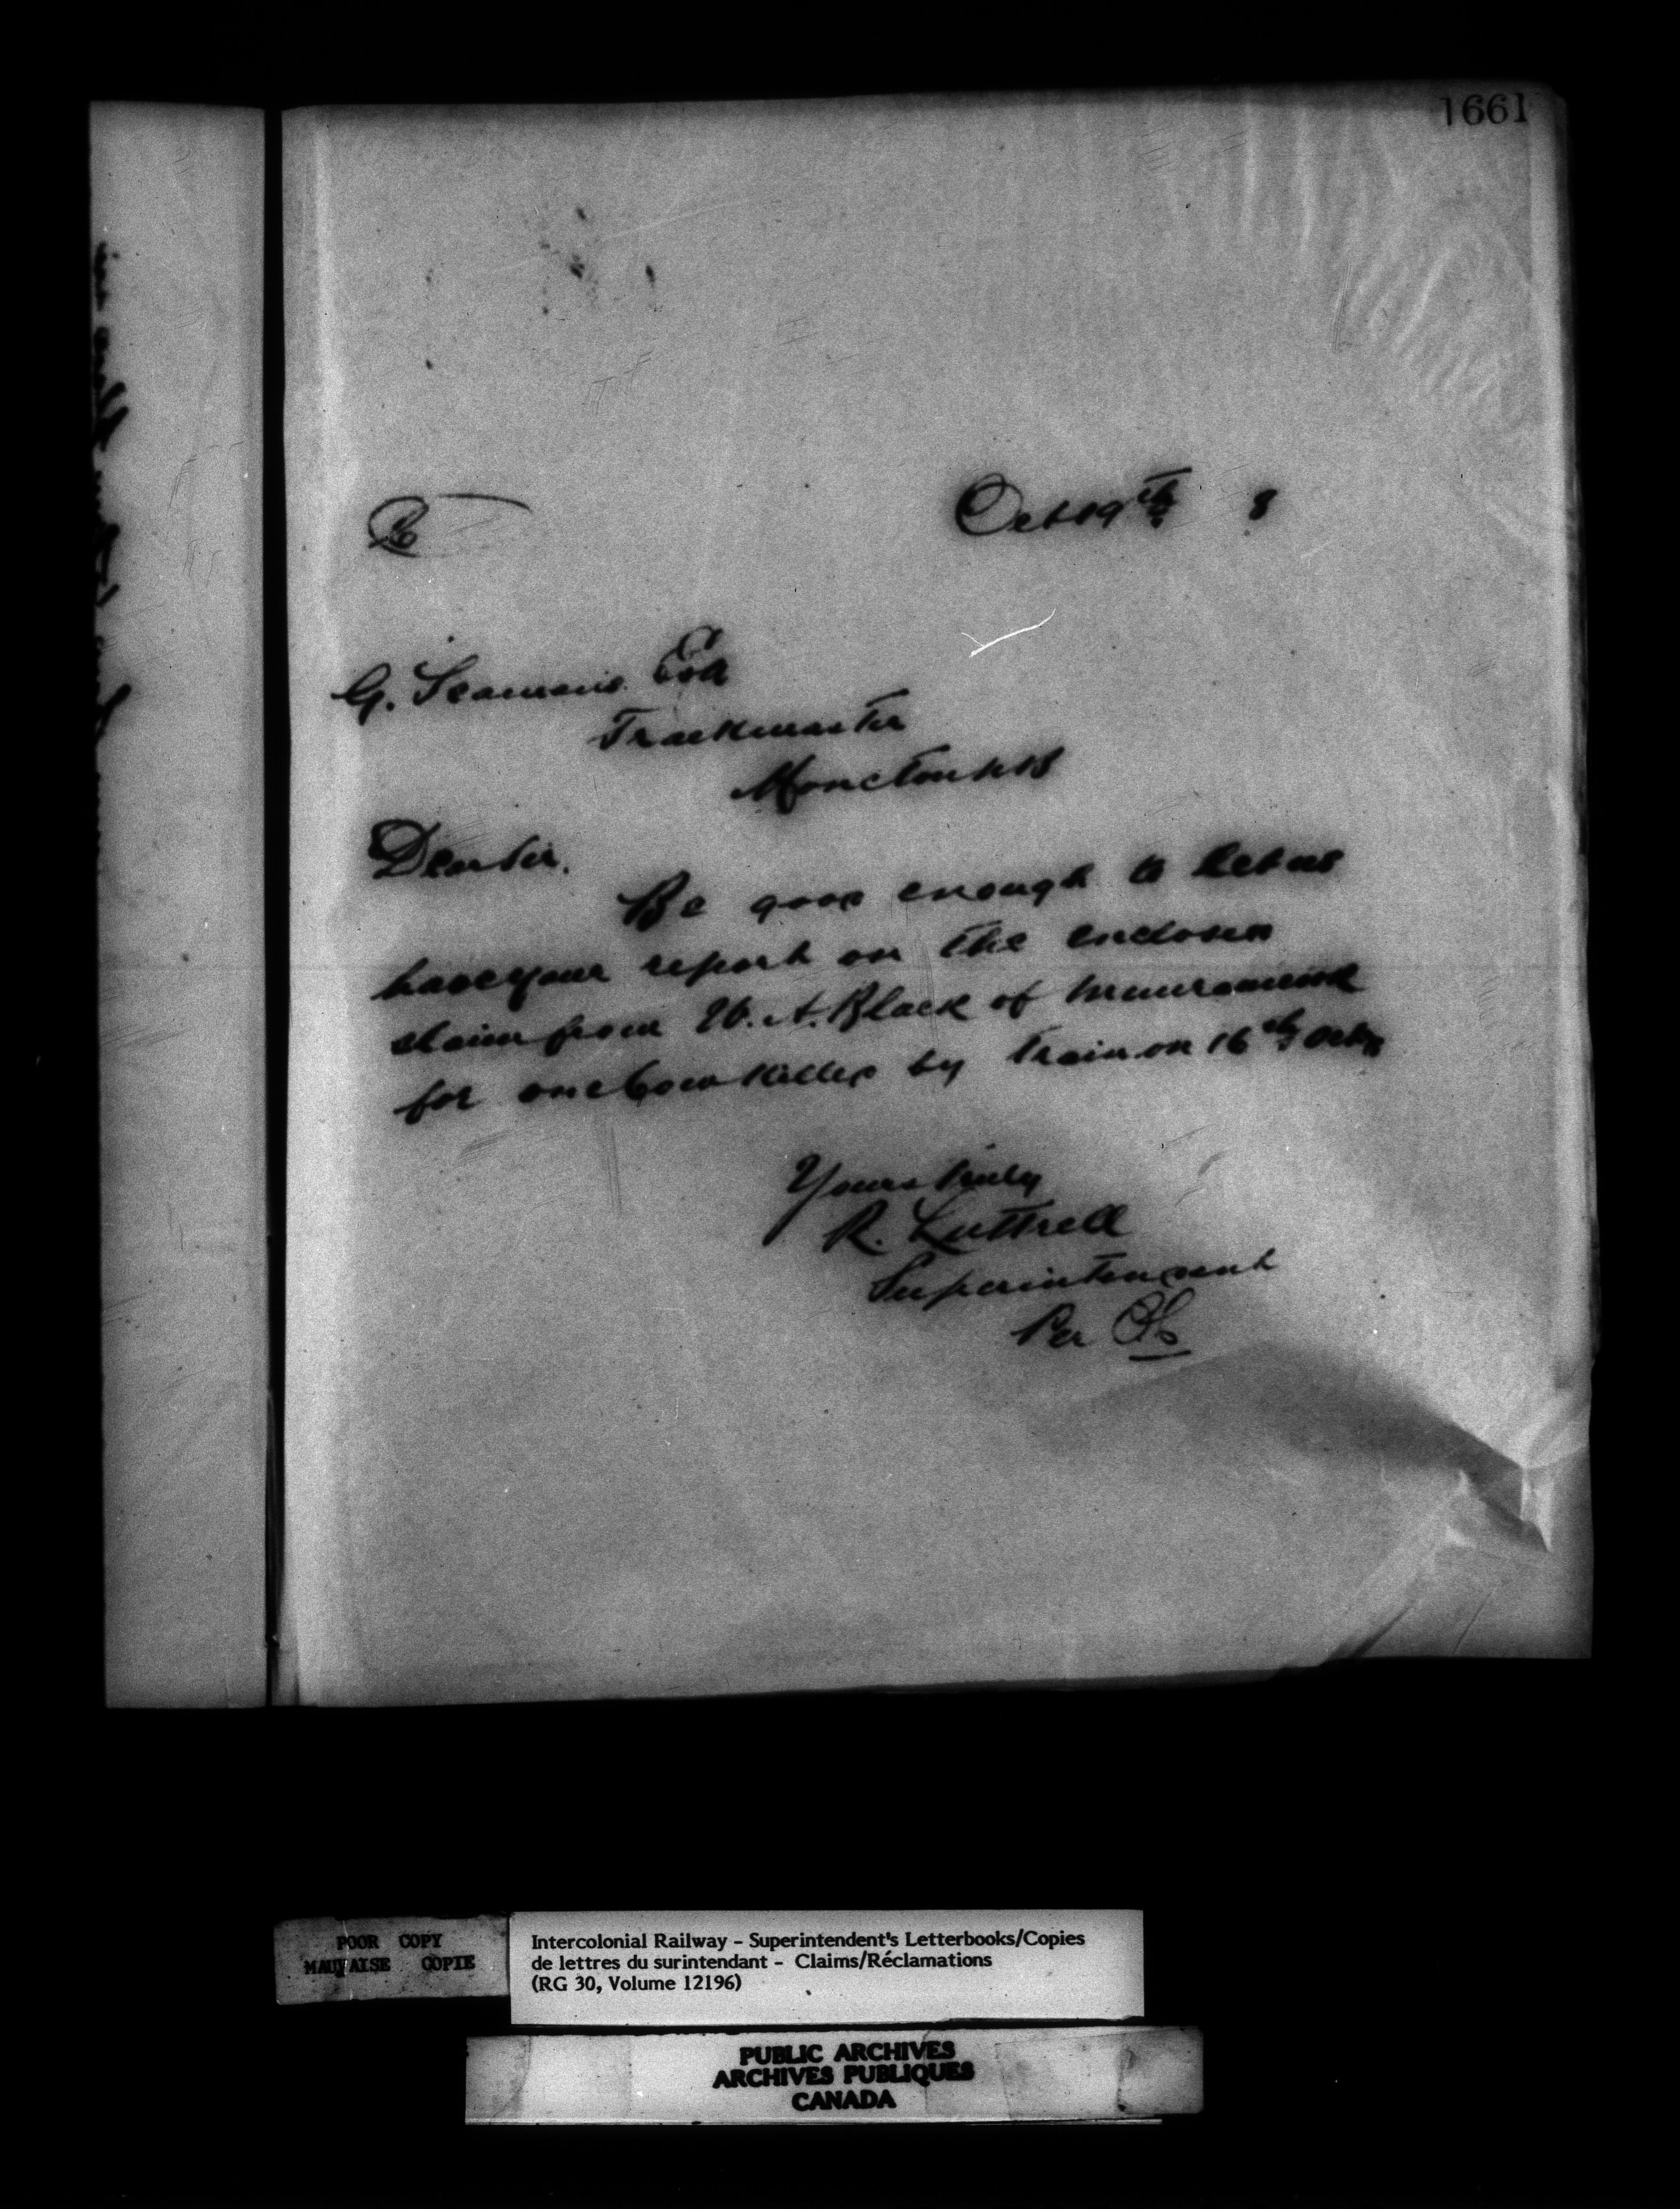 1661
Oct 19th 8
G. Seamans Esq
Trackmaster
Moncton NB
Dear Sir.
Be good enough to let us
have your report on the enclosed
claim from W. A. Black of
for one Cow killed by train on 16th Octr
Yours truly
R. Luttrell
Superintendent
Per
POOR COPY
MAUVAISE COPIE
Intercolonial Railway - Superintendent's Letterbooks/Copies
de lettres du surintendant - Claims/Réclamations
(RG 30, Volume 12196)
PUBLIC ARCHIVES
ARCHIVES PUBLIQUES
CANADA